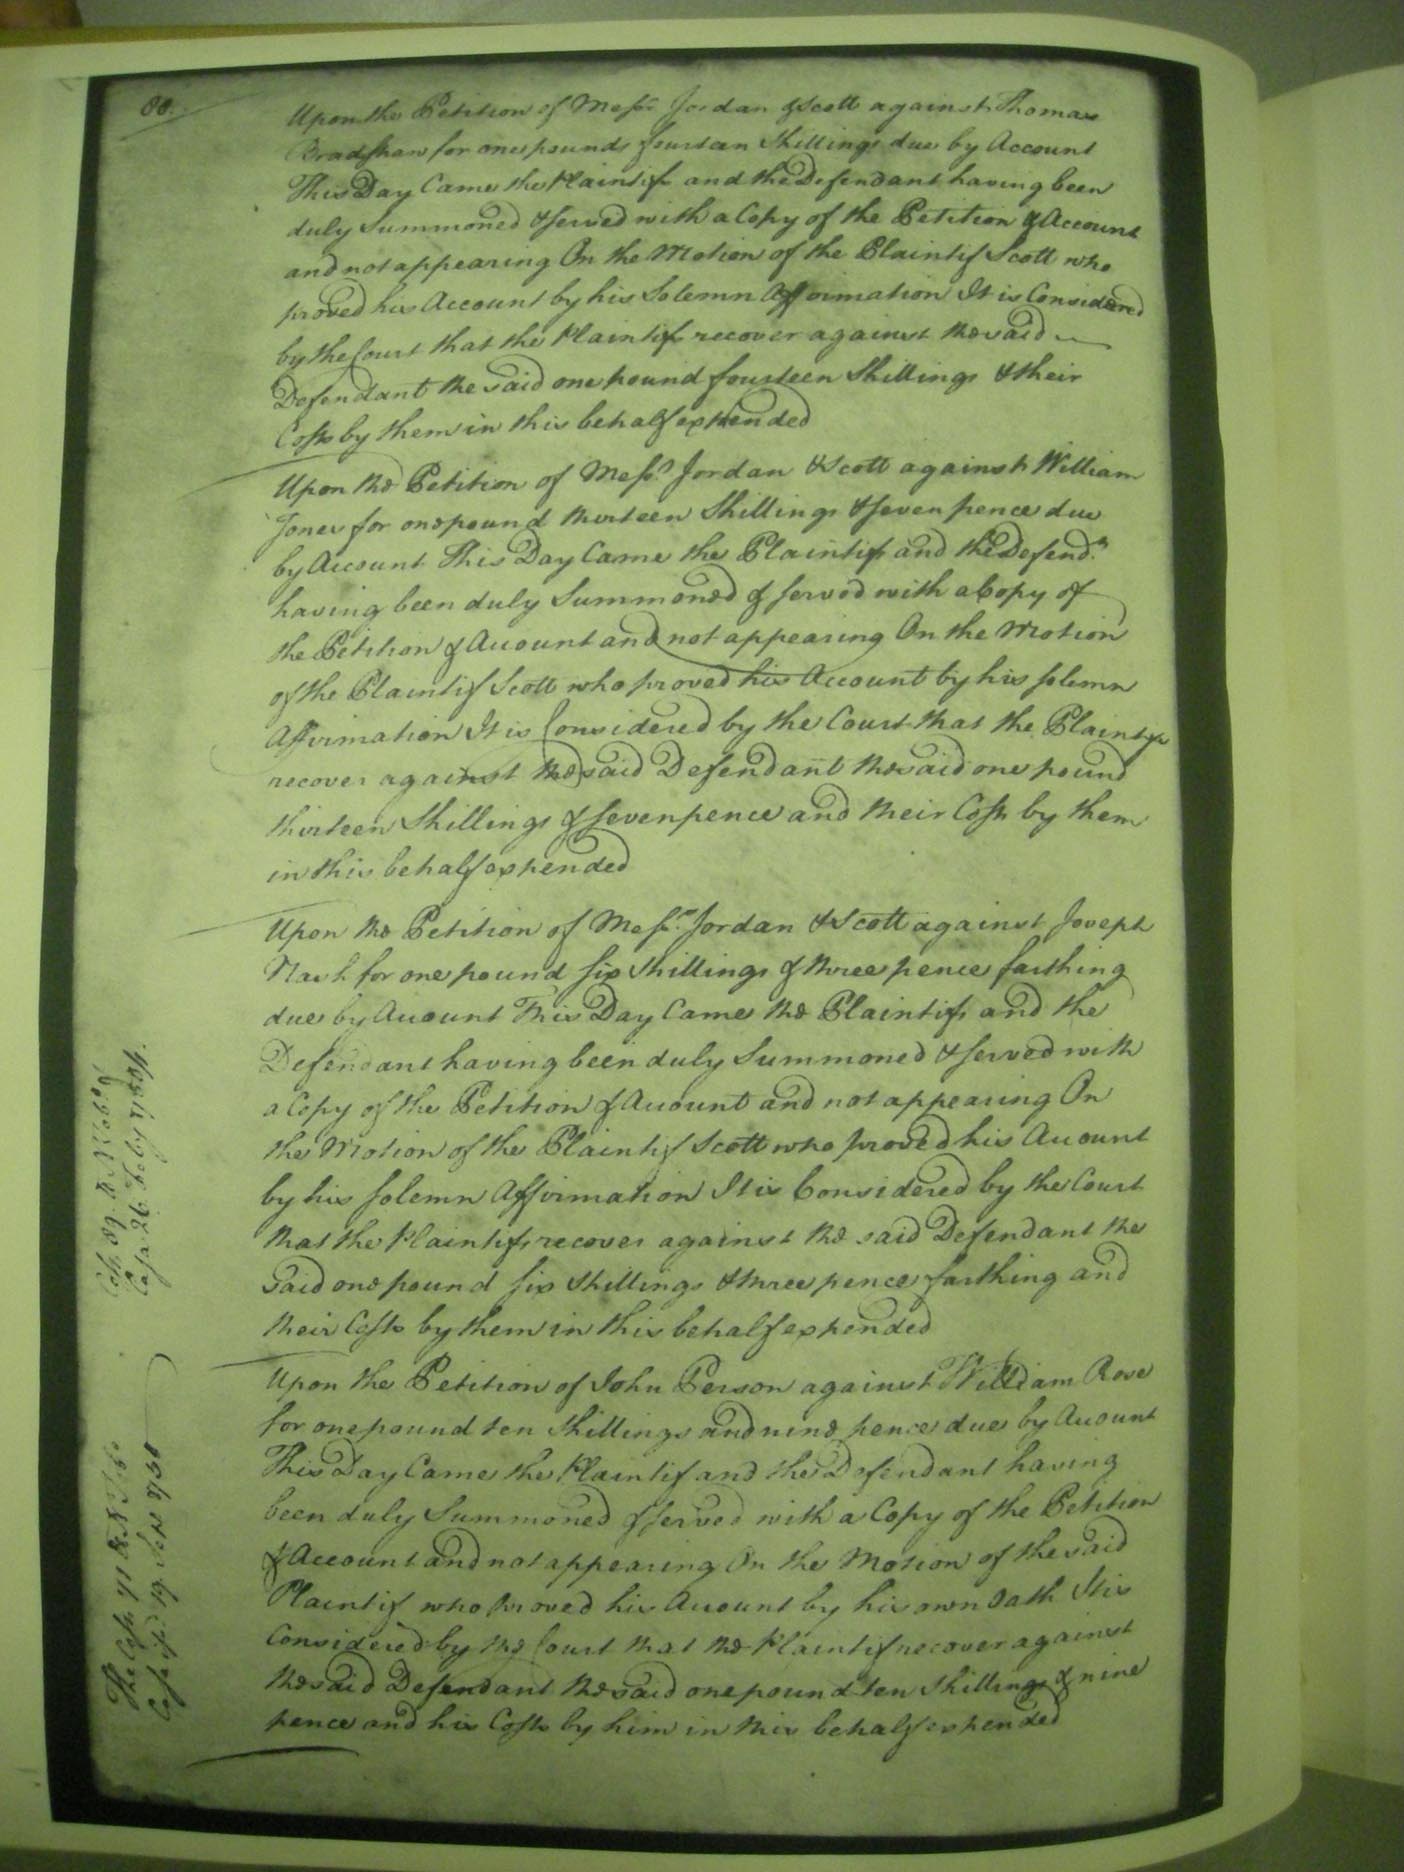 88.
Upon the Petition of Mess.rs Jordan & Scott against Thomas
Bradshaw for one pounds fourteen Shillings due by Account
This Day Came the Plaintifs and the Defendant having been
duly Summoned & served with a Copy of the Petition & Account
and not appearing On the Motion of the Plaintif Scott who
proved his Account by his Solemn Affirmation It is Considered
by the Court that the Plaintifs recover against the said
Defendant the said one pound fourteen Shillings & their
Costs by them in this behalf expended
Upon the Petition of Mess.rs Jordan & Scott against William
Jones for one pound thirteen Shillings & seven pence due
by Account This Day Came the Plaintifs and the Defend.t
having been duly Summoned & served with a Copy of
the Petition & Account and not appearing On the Motion
of the Plaintif Scott who proved his Account by his solemn
Affirmation It is Considered by the Court that the Plaintifs
recover against the said Defendant the said one pound
thirteen Shillings & seven pence and their Costs by them
in this behalf expended
Upon the Petition of Mess.rs Jordan & Scott against Joseph
Nash for one pound six Shillings & three pence farthing
due by Account This Day Came the Plaintifs and the
Defendant having been duly Summoned & served with
a Copy of the Petition & Account and not appearing On
the Motion of the Plaintif Scott who proved his Account
by his solemn Affirmation It is Considered by the Court
that the Plaintifs recover against the said Defendant the
said one pound six Shillings & three pence farthing and
their Costs by them in this behalf expended
Upon the Petition of John Person against William Rose
for one pound ten Shillings and nine pence due by Account
This Day Came the Plaintif and the Defendant having
been duly Summoned & served with a Copy of the Petition
& Account and not appearing On the Motion of the said
Plaintif who proved his Account by his own Oath It is
Considered by the Court that the Plaintif recover against
the said Defendant the said one pound ten Shillings & nine
pence and his Costs by him in this behalf expended